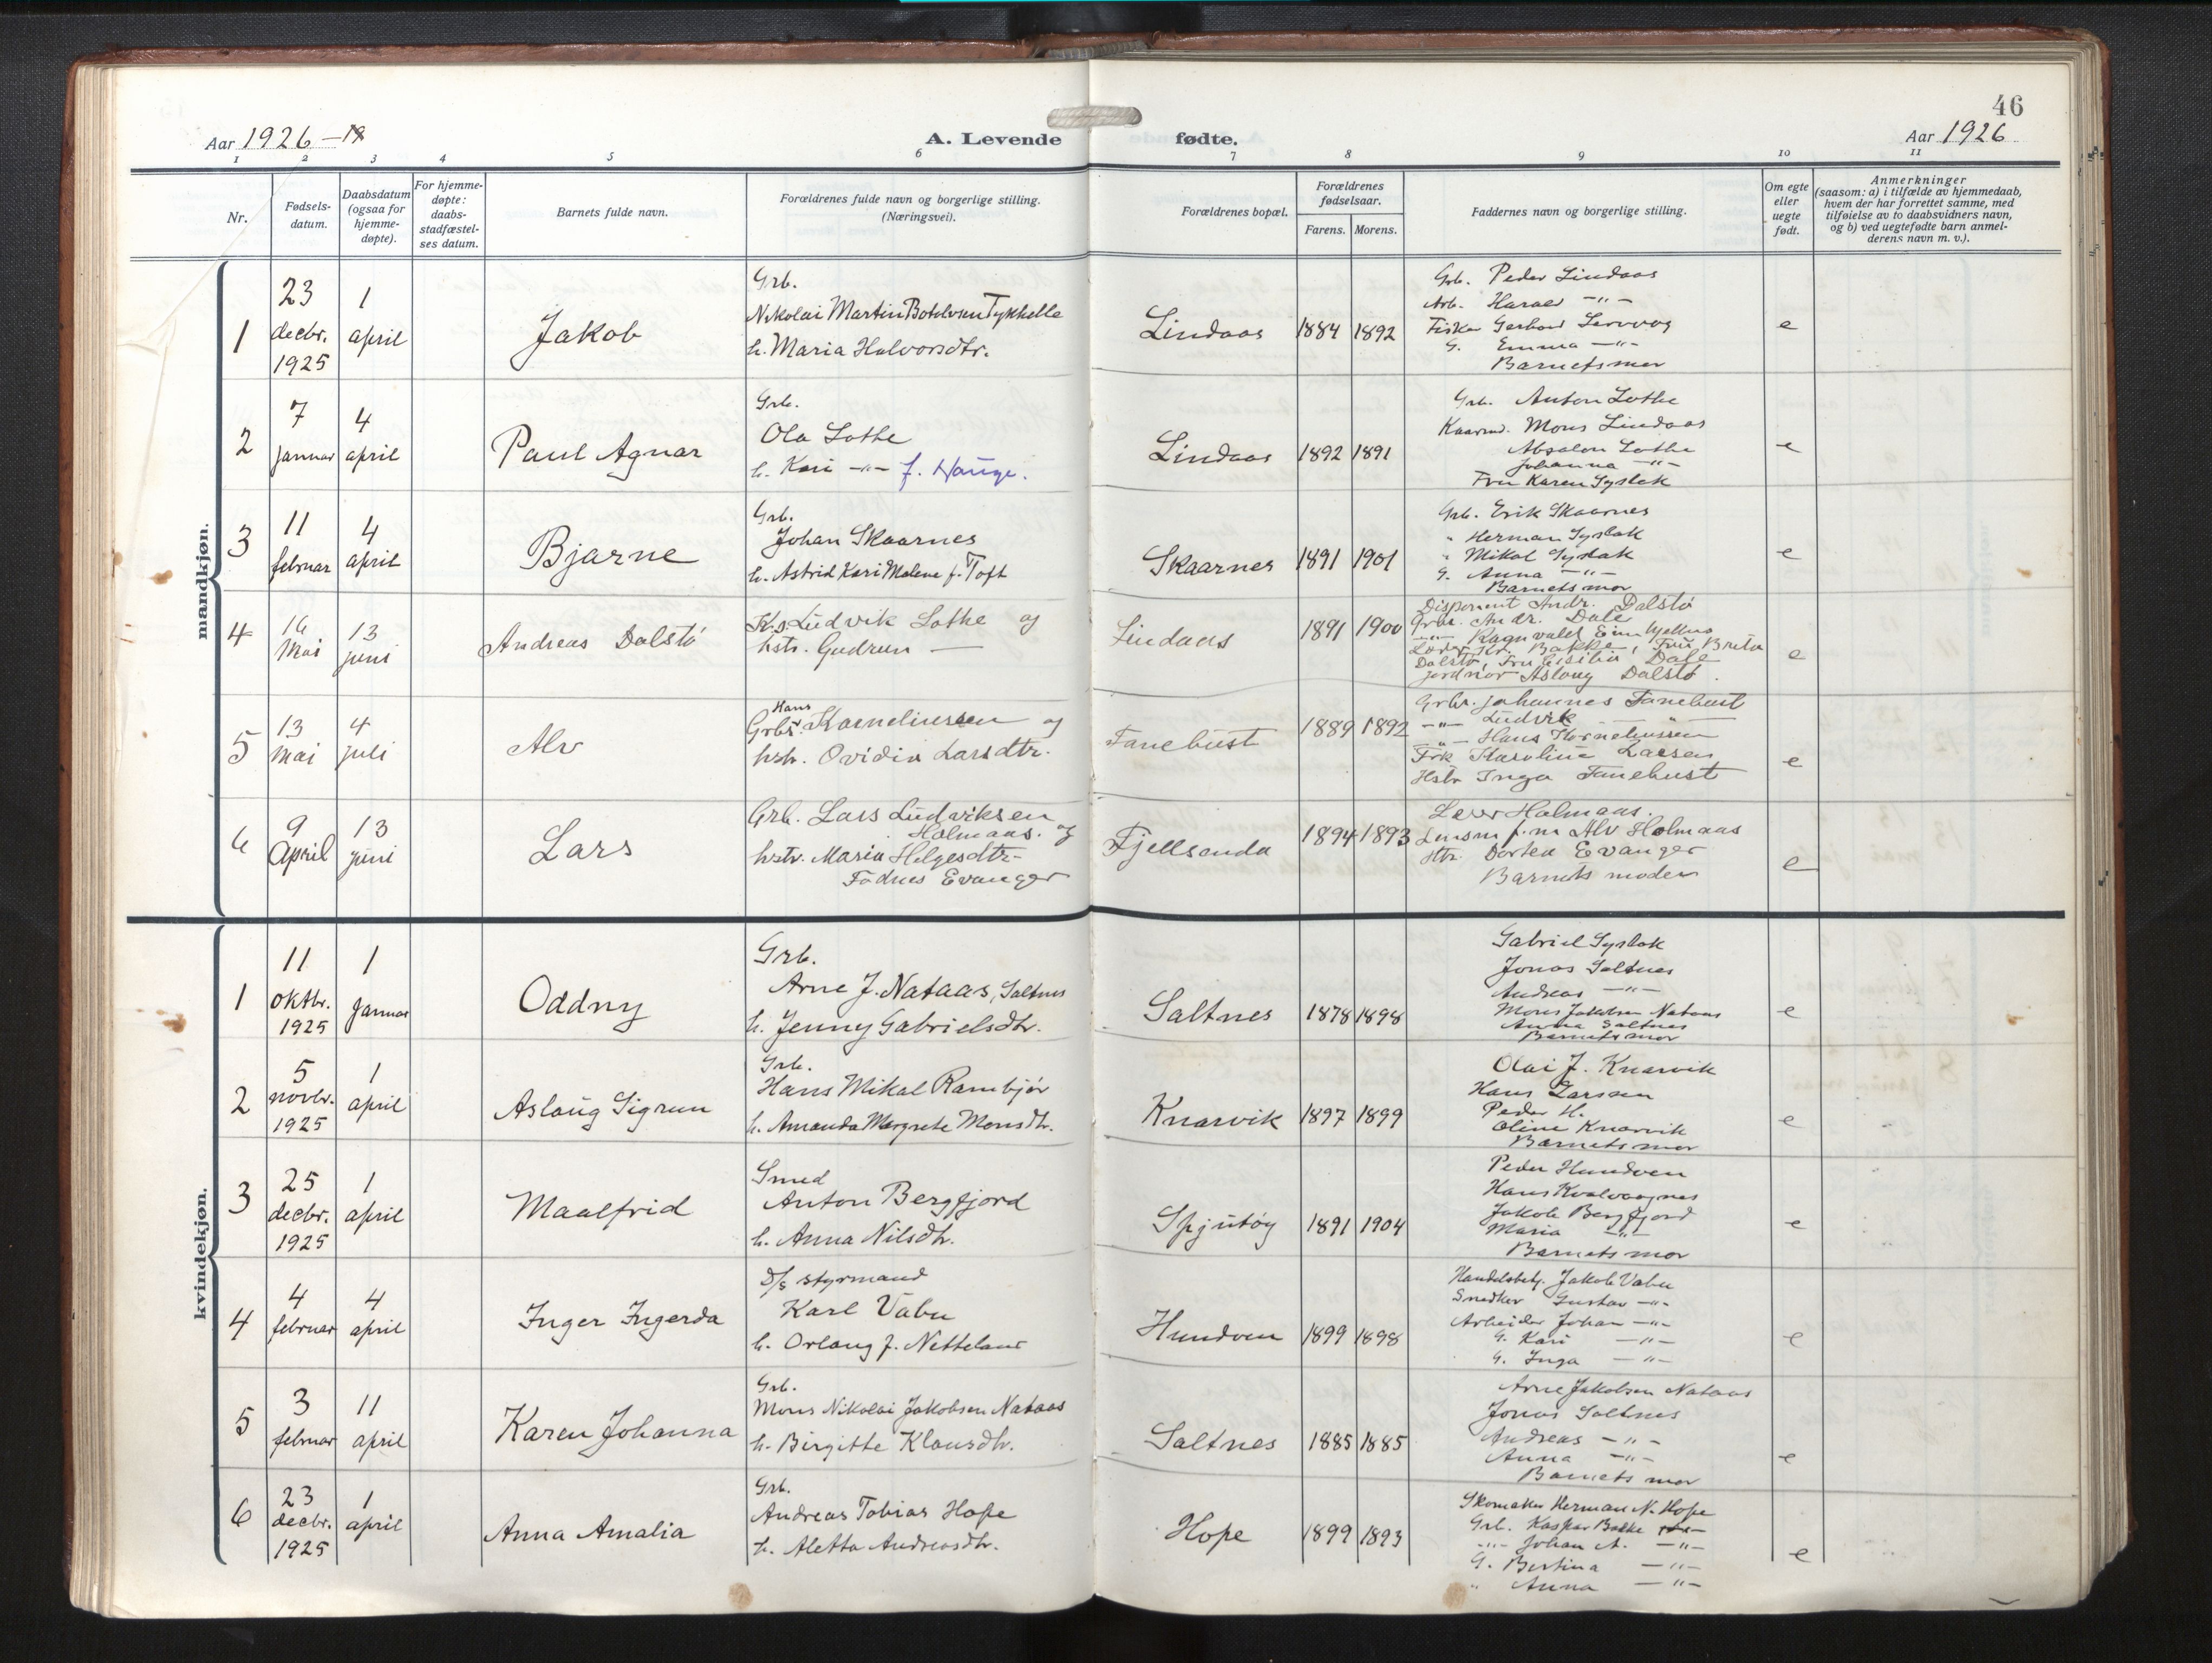 46
Aar 1926
A. Levende fødte.
Aar 1926
1 2 3 4 5 6 7 8 9 10 11
Nr.
Fødsels-
datum.
Daabsdatum
(ogsaa for
hjemme-
døpte).
For hjemme-
døpte:
daabs-
stadfæstel-
ses datum.
Barnets fulde navn.
Forældrenes fulde navn og borgerlige stilling.
(Næringsvei).
Forældrenes bopæl.
Forældrenes
fødselsaar.
Farens. Morens.
Faddernes navn og borgerlige stilling.
Om egte
eller
uegte
født.
Anmerkninger
(saasom: a) i tilfælde av hjemmedaab,
hvem der har forrettet samme, med
tilføielse av to daabsvidners navn,
og b) ved uegtefødte barn anmel-
derens navn m. v.).
mandkjøn.
1
23
decbr.
1925
1
april
Jakob
Grb.
Nikolai Martin Botolvsen Tykhelle
h. Maria Halvorsdtr.
Lindaas
1884 1892
Grb. Peder Lindaas
Arb. Harald -"-
Fisker Gerhard
G. Emma -"-
Barnets mor
e
2
7
januar
4
april
Paul Agnar
Grb.
Ola Lothe
h. Kari -"- f. Hauge.
Lindaas
1892 1891
Grb. Anton Lothe
Mons Lindaas
Absalon Lothe
Johanna -"-
Fru Karen Syslak
e
3
11
februar
4
april
Bjarne
Grb.
Johan Skaarnes
h. Astrid Kari Malene f. Toft
Skaarnes
1891 1901
Grb. Erik Skaarnes
" Herman Syslak
" Mikal Syslak
G. Anna -"-
Barnets mor
e
4
16
Mai
13
juni
Andreas Dalstø
K.s. Ludvik Lothe og
hstr. Gudrun —
Lindaas
1891 1900
Disponent Andr. Dalstø
Grbr. Andr. Dale
-"- Ragnvald
Kr. Bakke, Fru Breta
Dalstø, Fru Dale
jordmor Aslaug Dalstø.
e
5
13
Mai
4
juli
Alv
Hans
Grbr. Korneliussen og
hstr. Ovidia Larsdtr.
Fanebust
1889 1892
Grbr. Johannes Fanebust
-"- Ludvik — " —
-"- Hans Korneliussen
Frk Karoline Larsen
Hstr Inga Fanebust
e
6
9
April
13
juni
Lars
Grb. Lars Ludviksen
Holmaas. og
hstr. Maria Helgesdtr-
Fadnes Evanger
Fjellsenda
1894 1893
Holmaas.
Lensm f.m Alv Holmaas
Htr. Dortea Evanger
Barnets moder
e
kvindekjøn.
1
11
oktbr.
1925
1
Januar
Oddny
Grb.
Arne J. Nataas, Saltnes
h. Jenny Gabrielsdtr.
Saltnes
1878 1898
Gabriel Syslak
Jonas Saltnes
Andreas -"-
Mons Jakobsen Nataas
Anna Saltnes
Barnets mor
e
2
5
novbr.
1925
1
april
Aslaug Sigrun
Grb.
Hans Mikal Rambjør
h. Amanda Margrete Monsdtr.
Knarvik
1897 1899
Olai J. Knarvik
Hans Larsen
Peder H.
Oline Knarvik
Barnets mor
e
3
25
decbr.
1925
1
april
Maalfrid
Smed
Anton Bergfjord
h. Anna Nilsdtr.
Spjutøy
1891 1904
Peder Hundven
Hans Kvalvaagnes
Jakob Bergfjord
Maria -"-
Barnets mor
e
4
4
februar
4
april
Inger Ingerda
D/s styrmand
Karl Vabu
h. Orlaug f. Netteland
Hundven
1899 1898
Handelsbetj. Jakob Vabu
Snedker Gustav -"-
Arbeider Johan -"-
G. Kari -"-
G. Inga -"-
e
5
3
februar
11
april
Karen Johanna
Grb.
Mons Nikolai Jakobsen Nataas
h. Birgitte Klausdtr.
Saltnes
1885 1885
Arne Jakobsen Nataas
Jonas Saltnes
Andreas -"-
Anna -"-
Barnets mor
e
6
23
decbr.
1925
1
april
Anna Amalia
Grb.
Andreas Tobias Hope
h. Aletta Andreasdtr.
Hope
1899 1893
Skomaker Herman N. Hope
Grb. Kaspar Bakke
-"- Johan A. -"-
G. Bertina -"-
" Anna -"-
e